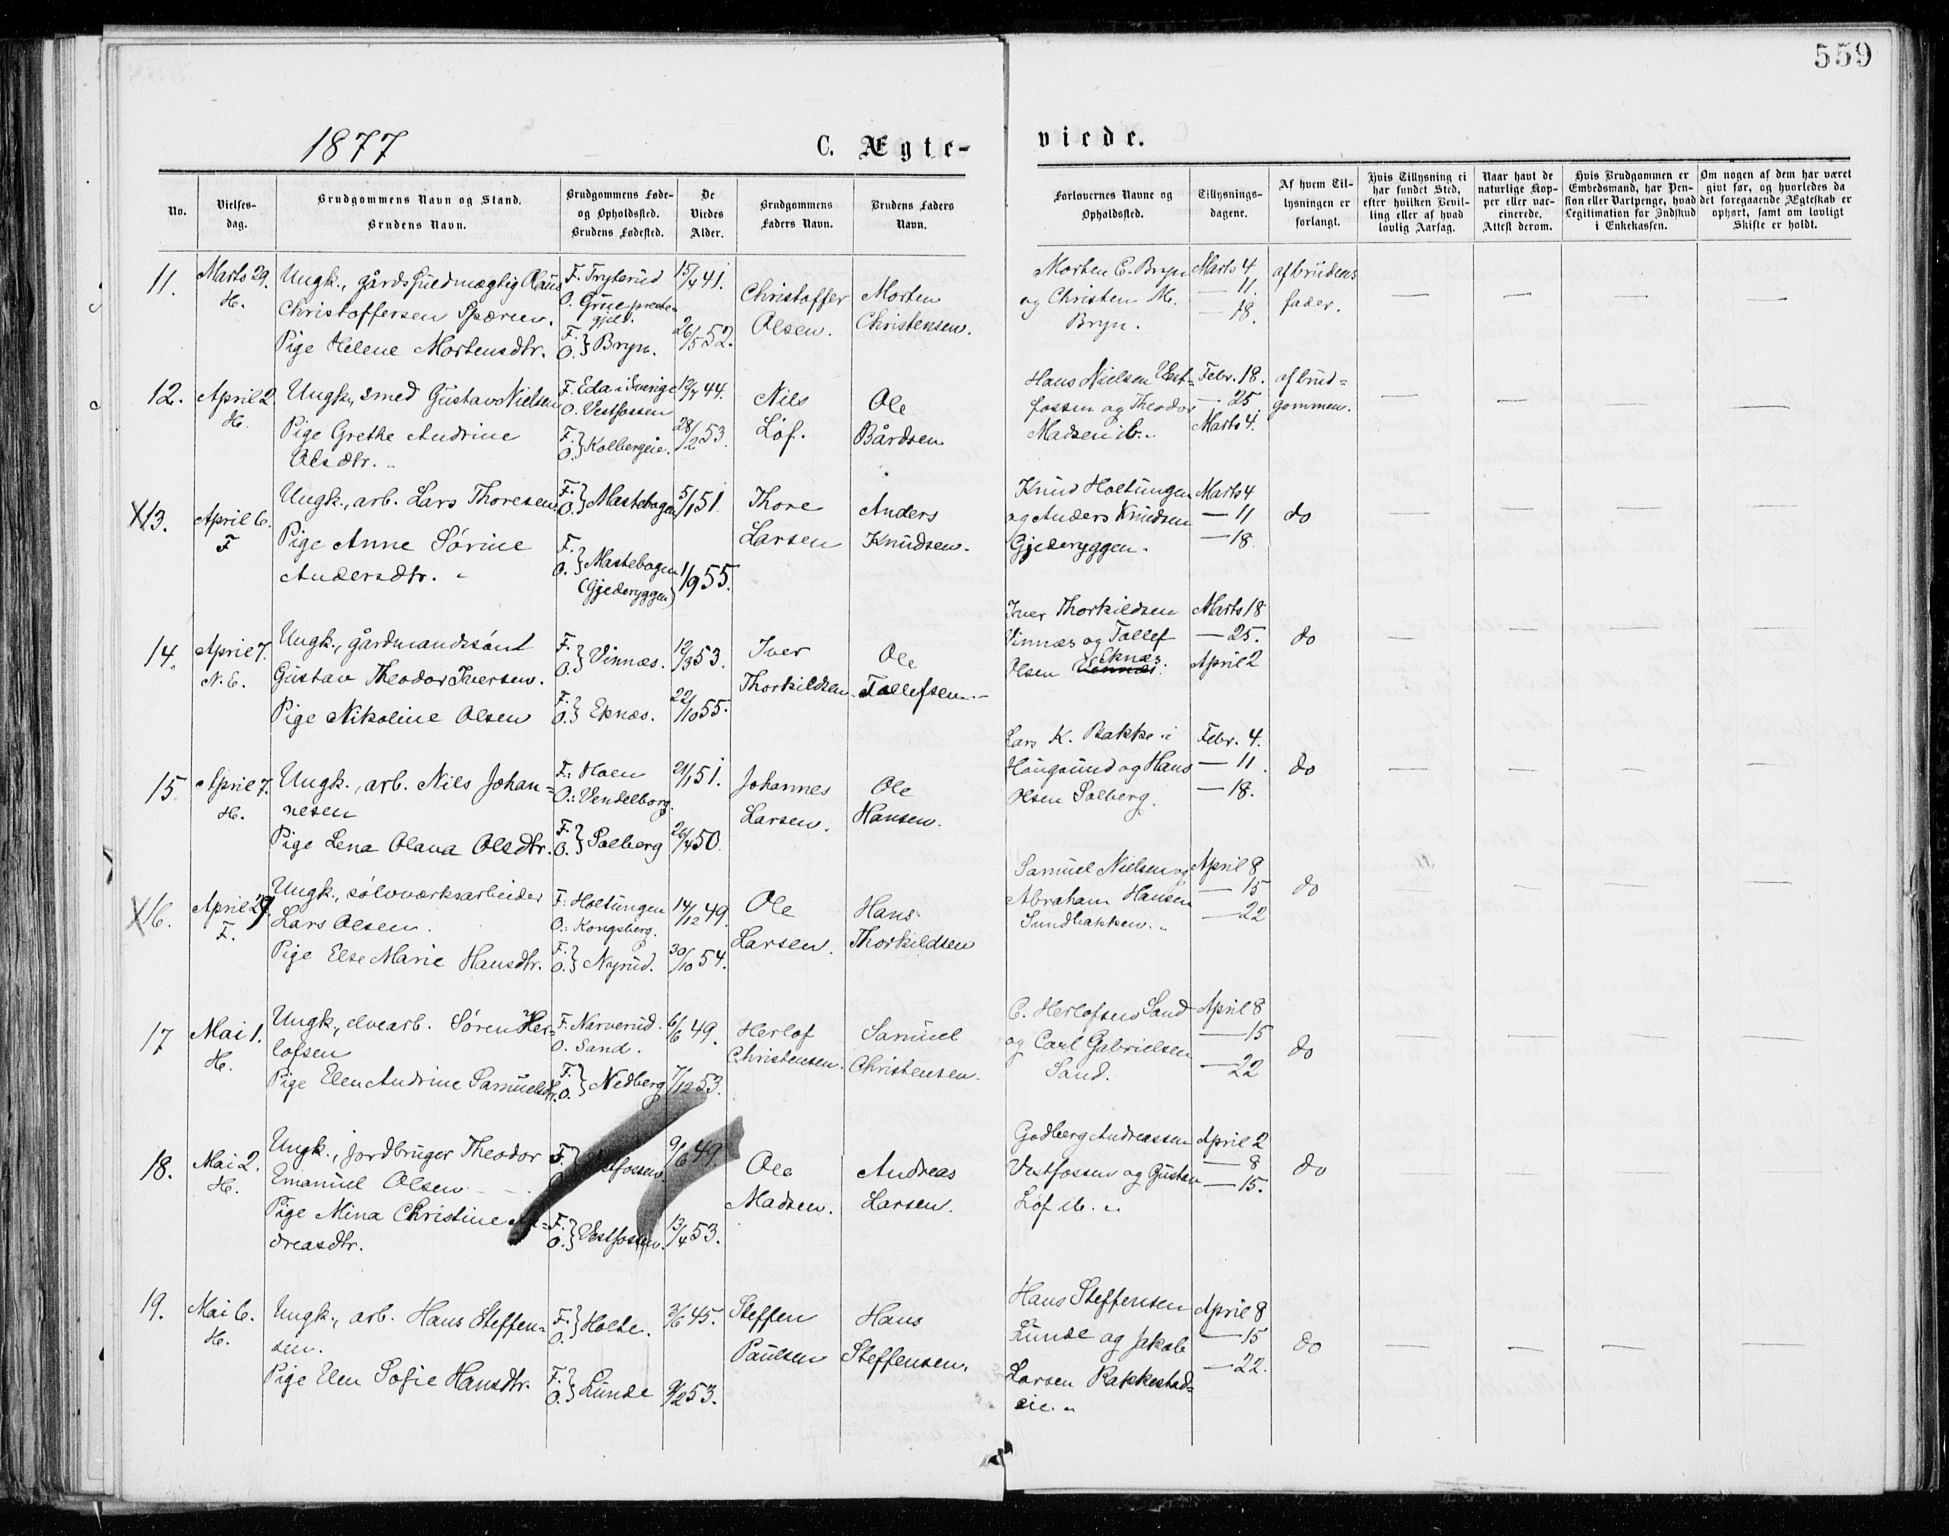 559
1877
C. Ægte-
viede.
No.
Vielses-
dag.
Brudgommens Navn og Stand.
Brudens Navn.
Brudgommens Føde-
og Opholdssted.
Brudens Fødested.
De
Viedes
Alder.
Brudgommens
Faders Navn.
Brudens Faders
Navn.
Forlovernes Navne og
Opholdssted.
Tillysnings-
dagene.
Af hvem Til-
lysningen er
forlangt.
Hvis Tillysning ei
har fundet Sted,
efter hvilken Bevil-
ling eller af hvad
lovlig Aarsag.
Naar havt de
naturlige Kop-
per eller vac-
cinerede.
Attest derom.
Hvis Brudgommen er
Embedsmand, har Pen-
sion eller Vartpenge, hvad
Legitimation for Indskud
i Enkekassen.
Om nogen af dem har været
givt før, og hvorledes da
det foregaaende Ægteskab er
ophørt, samt om lovligt
Skifte er holdt.
11.
Marts 29.
H.
Ungk., gårdsfuldmægtig
Christoffersen
Pige Helene Mortensdtr.
F. Tryterud
O. Grue preste-
gjeld.
F. O. } Bryn.
15/4 41.
26/5 52.
Christoffer
Olsen.
Morten
Christensen.
Morten C. Bryn
og Christen M.
Bryn.
Marts 4
— 11.
— 18.
af brudens
fader.
12.
April 2
H.
Ungk., smed Gustav Nielsen
Pige Grethe Andrine
Olsdtr. "
F. Eda i Sverige
O. Vestfossen
F. O. } Kolbergeie.
12/7 44.
28/2 53.
Nils
Löf.
Ole
Bårdsen
Hans Nielsen Vest-
fossen og Theodor
Madsen ib. "
Febr. 18.
— 25
Marts 4.
af brud-
gommen.
X13.
April 6.
F
Ungk., arb. Lars Thoresen
Pige Anne Sörine
Andersdtr. "
F. O. } Mastebogen
F. O. } Mastebogen
(Gjederyggen)
5/1 51.
1/9 55.
Thore
Larsen
Anders
Knudsen.
Knud Holtungen
og Anders Knudsen
Gjederyggen.
Marts 4
— 11
— 18.
do
14.
April 7.
N. E.
Ungk., gårdmandssönt
Gustav Theodor Iversen.
Pige Nikoline Olsen
F. O. } Vinnæs.
F. O. } Eknæs.
12/3 53.
22/10 55.
Iver
Thorkildsen.
Ole
Tollefsen.
Iver Thorkildsen
Vinnæs og Tollef
Olsen Vennæs Eknæs.
Marts 18
— 25.
April 2
do
15
April 7.
H.
Ungk., arb. Nils Johan-
nesen
Pige Lena Olava Olsdtr.
F.: Hoen
O.: Vendelborg.
F. O. } Solberg
21/1 51.
26/4 50.
Johannes
Larsen.
Ole
Hansen.
Lars K. Bakke i
Hougsund og Hans
Olsen Solberg.
Febr. 4.
— 11.
— 18.
do
X16.
April 29
F.
Ungk., sölvværksarbeider
Lars Olsen.
Pige Else Marie Hansdtr.
F: Holtungen
O.: Kongsberg.
F. O. } Nyrud.
14/12 49.
30/10 54.
Ole
Larsen.
Hans
Thorkildsen
Samuel Nielsen og
Abraham Hansen
Sundbakken. "
April 8
— 15
— 22
do
17
Mai 1.
H.
Ungk, elvearb. Sören Her-
lofsen
Pige Elen Andrine Samuelsdtr.
F. Narverud.
O. Sand.
F. O. } Nedberg
6/6 49.
7/12 53.
Herlof
Christensen.
Samuel
Christensen.
C. Herlofsen Sand
og Carl Gabrielsen
Sand.
April 8
— 15
— 22
do
18.
Mai 2.
H.
Ungk., jordbruger Theodor
Emanuel Olsen
Pige Mina Christine An-
dreasdtr.
F. O. } Vestfossen
F. O. } Vestfossen.
9/6 49.
13/4 53.
Ole
Madsen.
Andreas
Larsen.
Godberg Andreassen
Vestfossen og Gustav
Löf ib. "
April 2
— 8
— 15.
do
19.
Mai 6.
H.
Ungk., arb. Hans Steffen-
sen.
Pige Elen Sofie Hansdtr.
F. O. } Holte.
F. O. } Lunde
3/6 45.
9/2 53.
Steffen
Paulsen
Hans
Steffensen.
Hans Steffensen
Lunde og Jakob
Larsen Rakkestad-
eie. "
April 8
— 15
— 22.
do